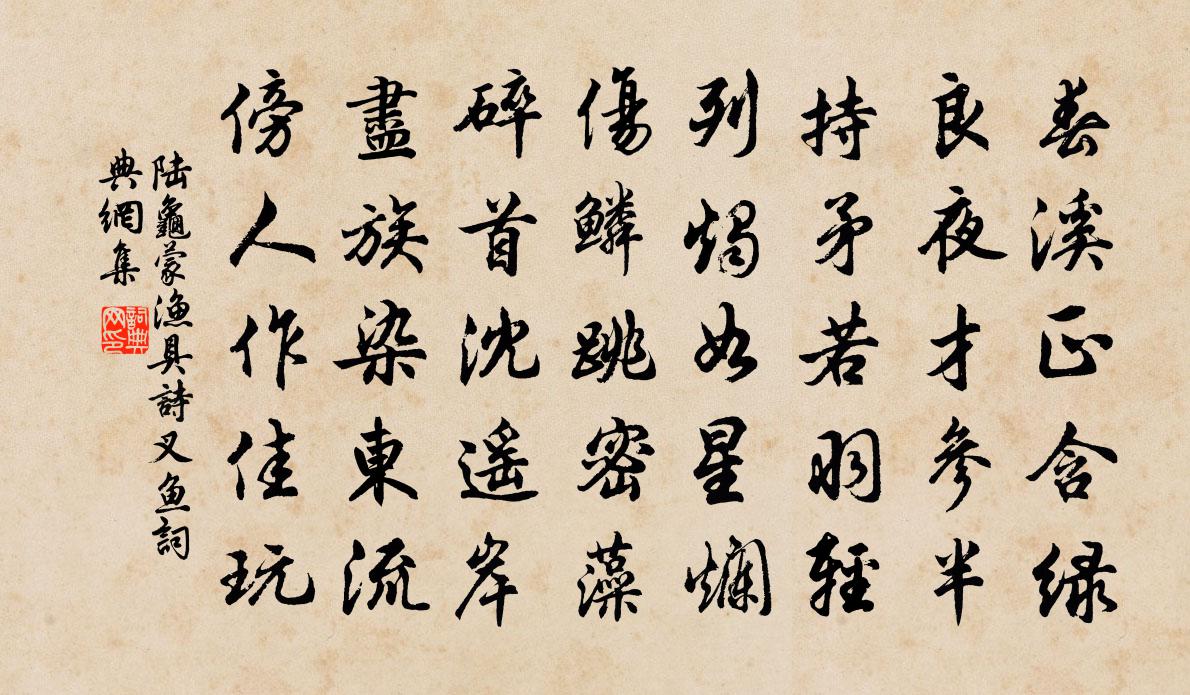 春溪正含綠
良夜才參半
持矛若羽輕
列燭如星爛
傷鱗跳密藻
碎首沈遥岸
盡族染東流
傍人作佳玩
陆龜蒙漁具詩叉魚詞
典網集
詞典
网印